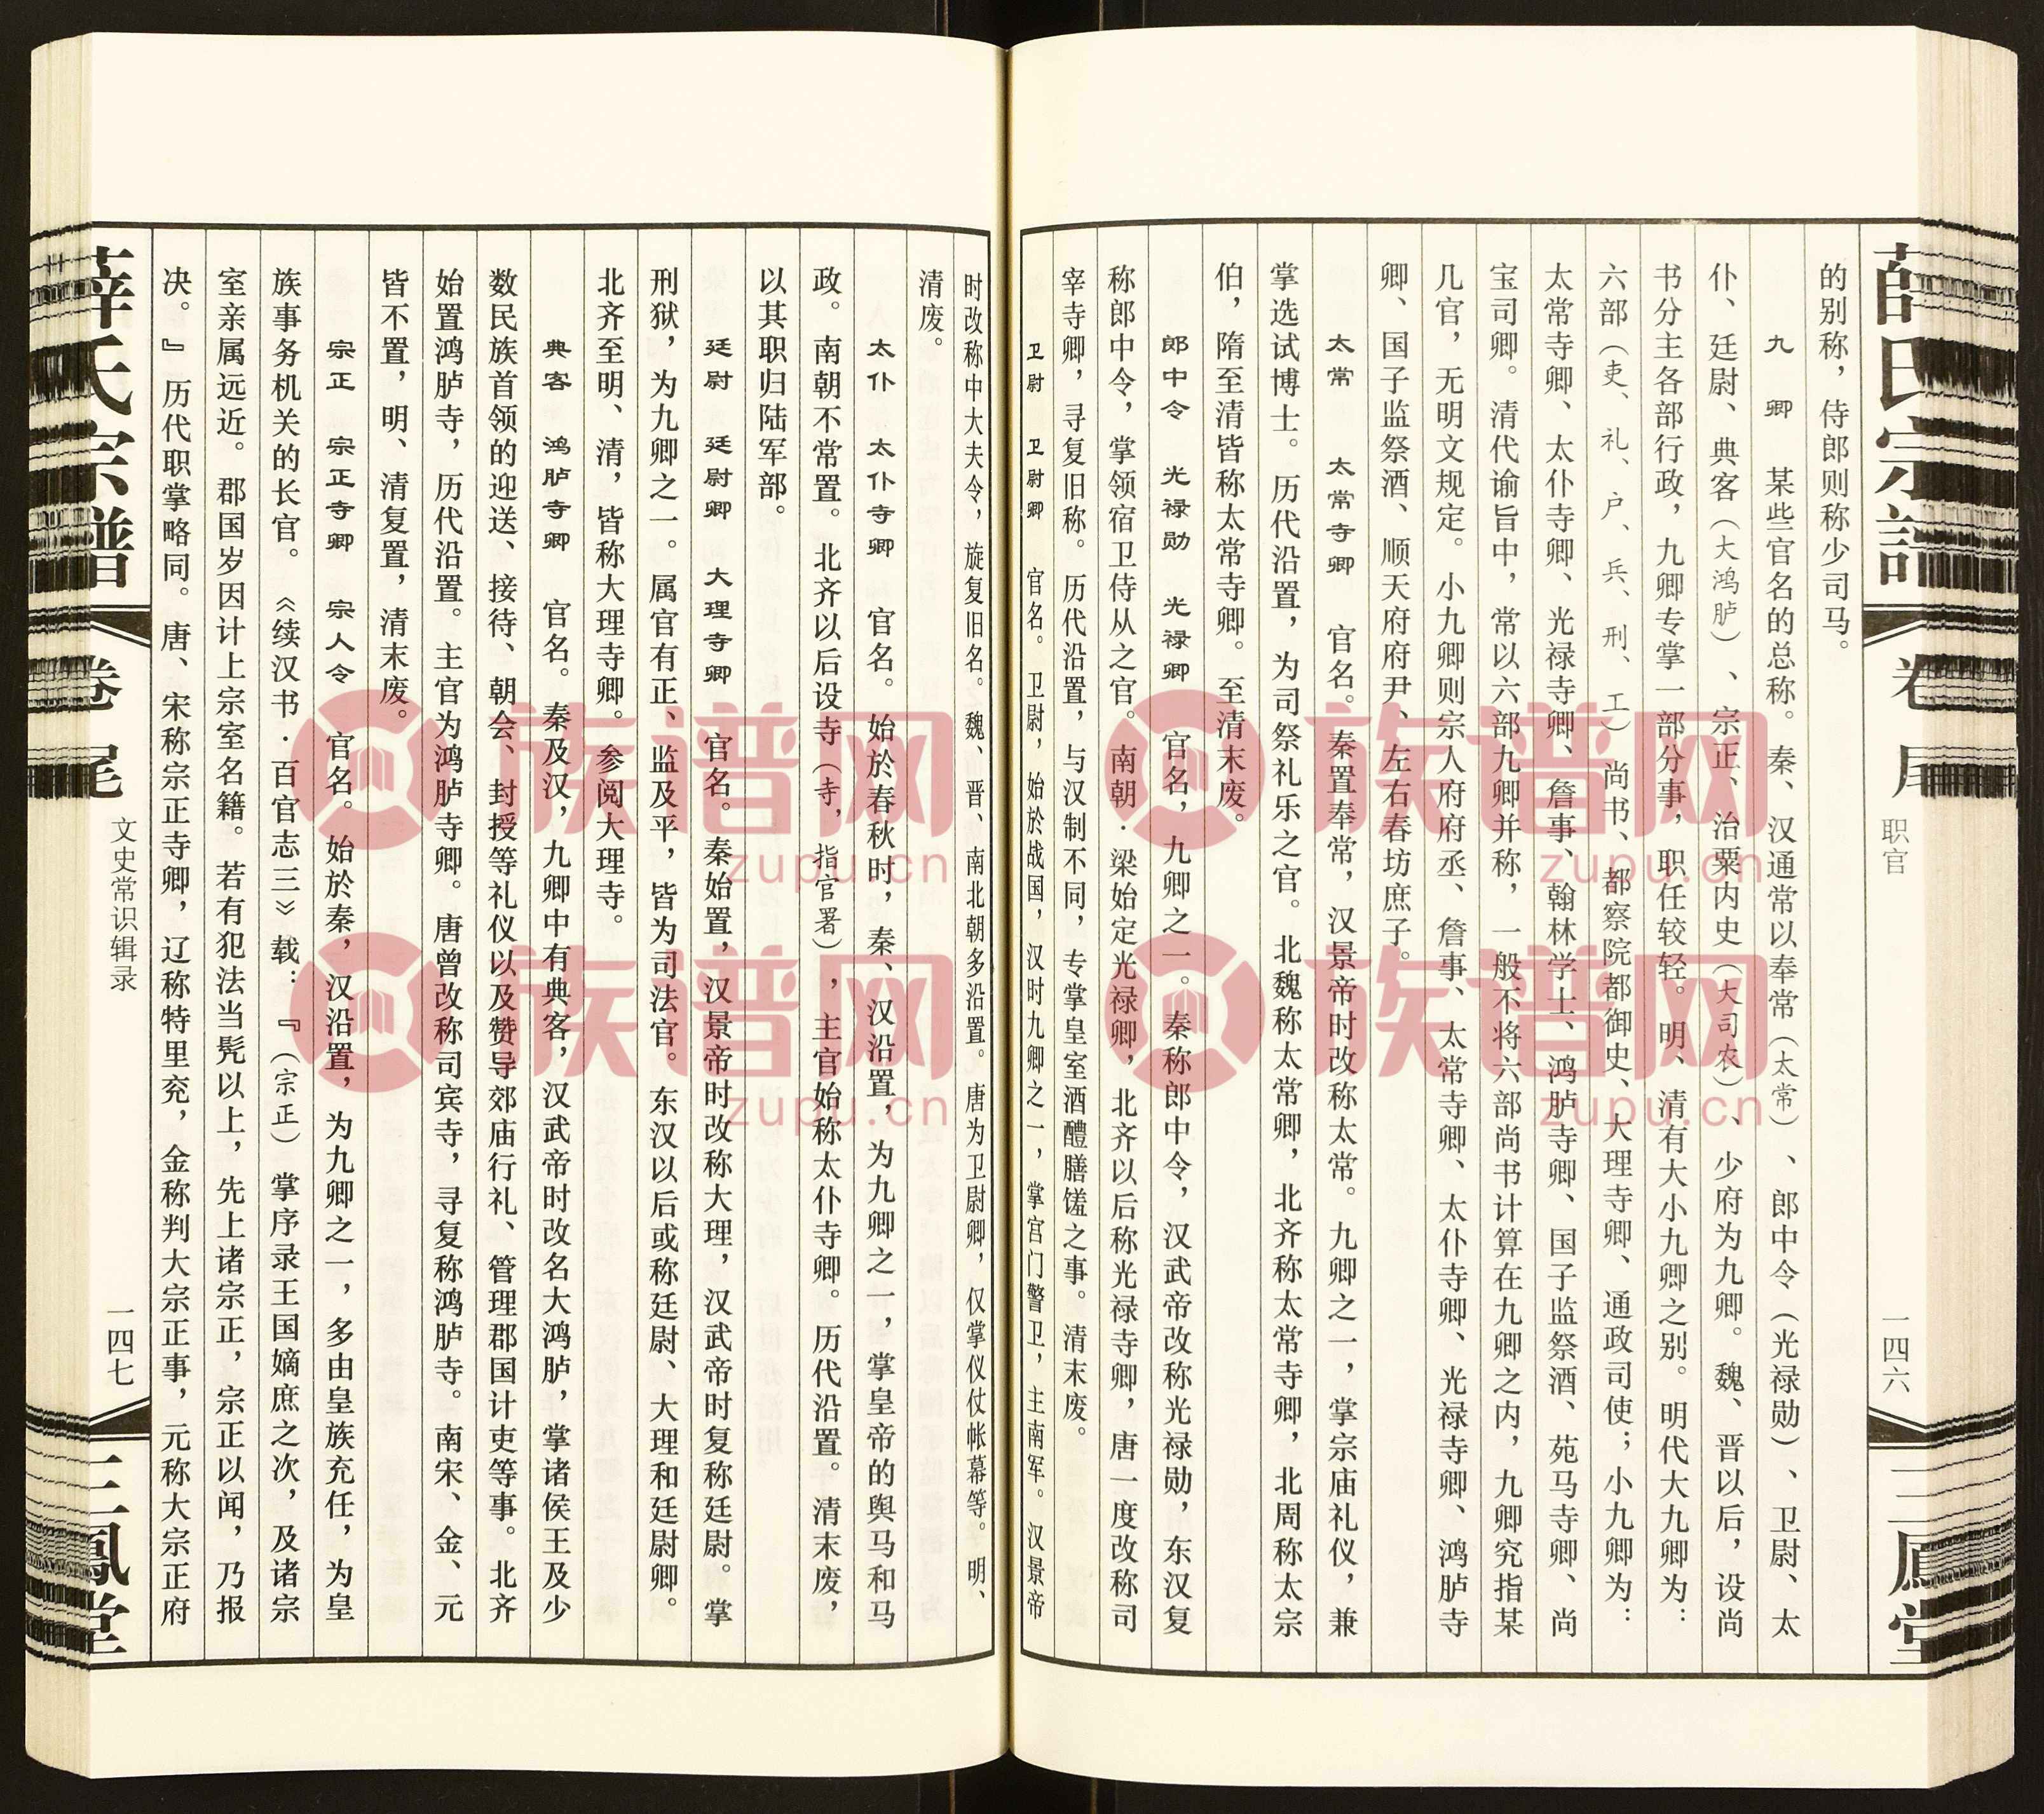 薛氏宗譜
卷尾
职官
一四六
三鳳堂
的别称，侍郎则称少司马。
九卿　某些官名的总称。秦、汉通常以奉常（太常）、郎中令（光禄勋）、卫尉、太
仆、廷尉、典客（大鸿胪）、宗正、治粟内史（大司农）、少府为九卿。魏、晋以后，设尚
书分主各部行政，九卿专掌一部分事，职任较轻。明、清有大小九卿之别。明代大九卿为：
六部（吏、礼、户、兵、刑、工）尚书、都察院都御史、大理寺卿、通政司使；小九卿为：
太常寺卿、太仆寺卿、光禄寺卿、詹事、翰林学士、鸿胪寺卿、国子监祭酒、苑马寺卿、尚
宝司卿。清代谕旨中，常以六部九卿并称，一般不将六部尚书计算在九卿之内，九卿究指某
几官，无明文规定。小九卿则宗人府府丞、詹事、太常寺卿、太仆寺卿、光禄寺卿、鸿胪寺
卿、国子监祭酒、顺天府府尹、左右春坊庶子。
太常　太常寺卿　官名。秦置奉常，汉景帝时改称太常。九卿之一，掌宗庙礼仪，兼
掌选试博士。历代沿置，为司祭礼乐之官。北魏称太常卿，北齐称太常寺卿，北周称太宗
伯，隋至清皆称太常寺卿。至清末废。
郎中令　光禄勋　光禄卿　官名，九卿之一。秦称郎中令，汉武帝改称光禄勋，东汉复
称郎中令，掌领宿卫侍从之官。南朝·梁始定光禄卿，北齐以后称光禄寺卿，唐一度改称司
宰寺卿，寻复旧称。历代沿置，与汉制不同，专掌皇室酒醴膳馐之事。清末废。
卫尉　卫尉卿　官名。卫尉，始於战国，汉时九卿之一，掌宫门警卫，主南军。汉景帝
时改称中大夫令，旋复旧名。魏、晋、南北朝多沿置。唐为卫尉卿，仅掌仪仗帐幕等。明、
清废。
太仆　太仆寺卿　官名。始於春秋时，秦、汉沿置，为九卿之一，掌皇帝的舆马和马
政。南朝不常置。北齐以后设寺（寺，指官署），主官始称太仆寺卿。历代沿置。清末废，
以其职归陆军部。
廷尉　廷尉卿　大理寺卿　官名。秦始置，汉景帝时改称大理，汉武帝时复称廷尉。掌
刑狱，为九卿之一。属官有正、监及平，皆为司法官。东汉以后或称廷尉、大理和廷尉卿。
北齐至明、清，皆称大理寺卿。参阅大理寺。
典客　鸿胪寺卿　官名。秦及汉，九卿中有典客，汉武帝时改名大鸿胪，掌诸侯王及少
数民族首领的迎送、接待、朝会、封授等礼仪以及赞导郊庙行礼、管理郡国计吏等事。北齐
始置鸿胪寺，历代沿置。主官为鸿胪寺卿。唐曾改称司宾寺，寻复称鸿胪寺。南宋、金、元
皆不置，明、清复置，清末废。
宗正　宗正寺卿　宗人令　官名。始於秦，汉沿置，为九卿之一，多由皇族充任，为皇
族事务机关的长官。《续汉书·百官志三》载：『（宗正）掌序录王国嫡庶之次，及诸宗
室亲属远近。郡国岁因计上宗室名籍。若有犯法当髡以上，先上诸宗正，宗正以闻，乃报
决。』历代职掌略同。唐、宋称宗正寺卿，辽称特里兖，金称判大宗正事，元称大宗正府
薛氏宗譜
卷尾
文史常识辑录
一四七
三鳳堂
族谱网
zupu.cn
族谱网
zupu.cn
族谱网
zupu.cn
族谱网
zupu.cn